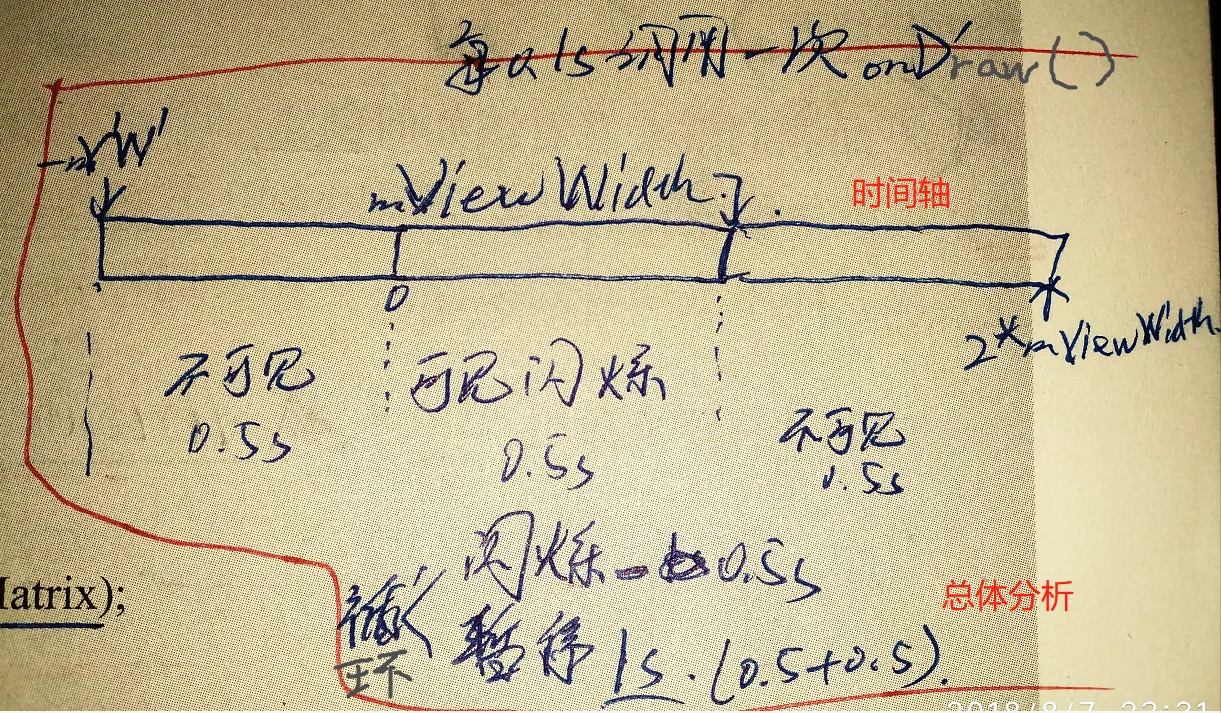 每0.1s调用一次 onDraw()
-mVW
mViewWidth
时间轴
0
2*mViewWidth
不可见
可见闪烁
0.5s
0.5s
不可见
0.5s
闪烁 0.5s
总体分析
latrix);
循环
暂停 1s.(0.5+0.5).
2018/8/7 22:31